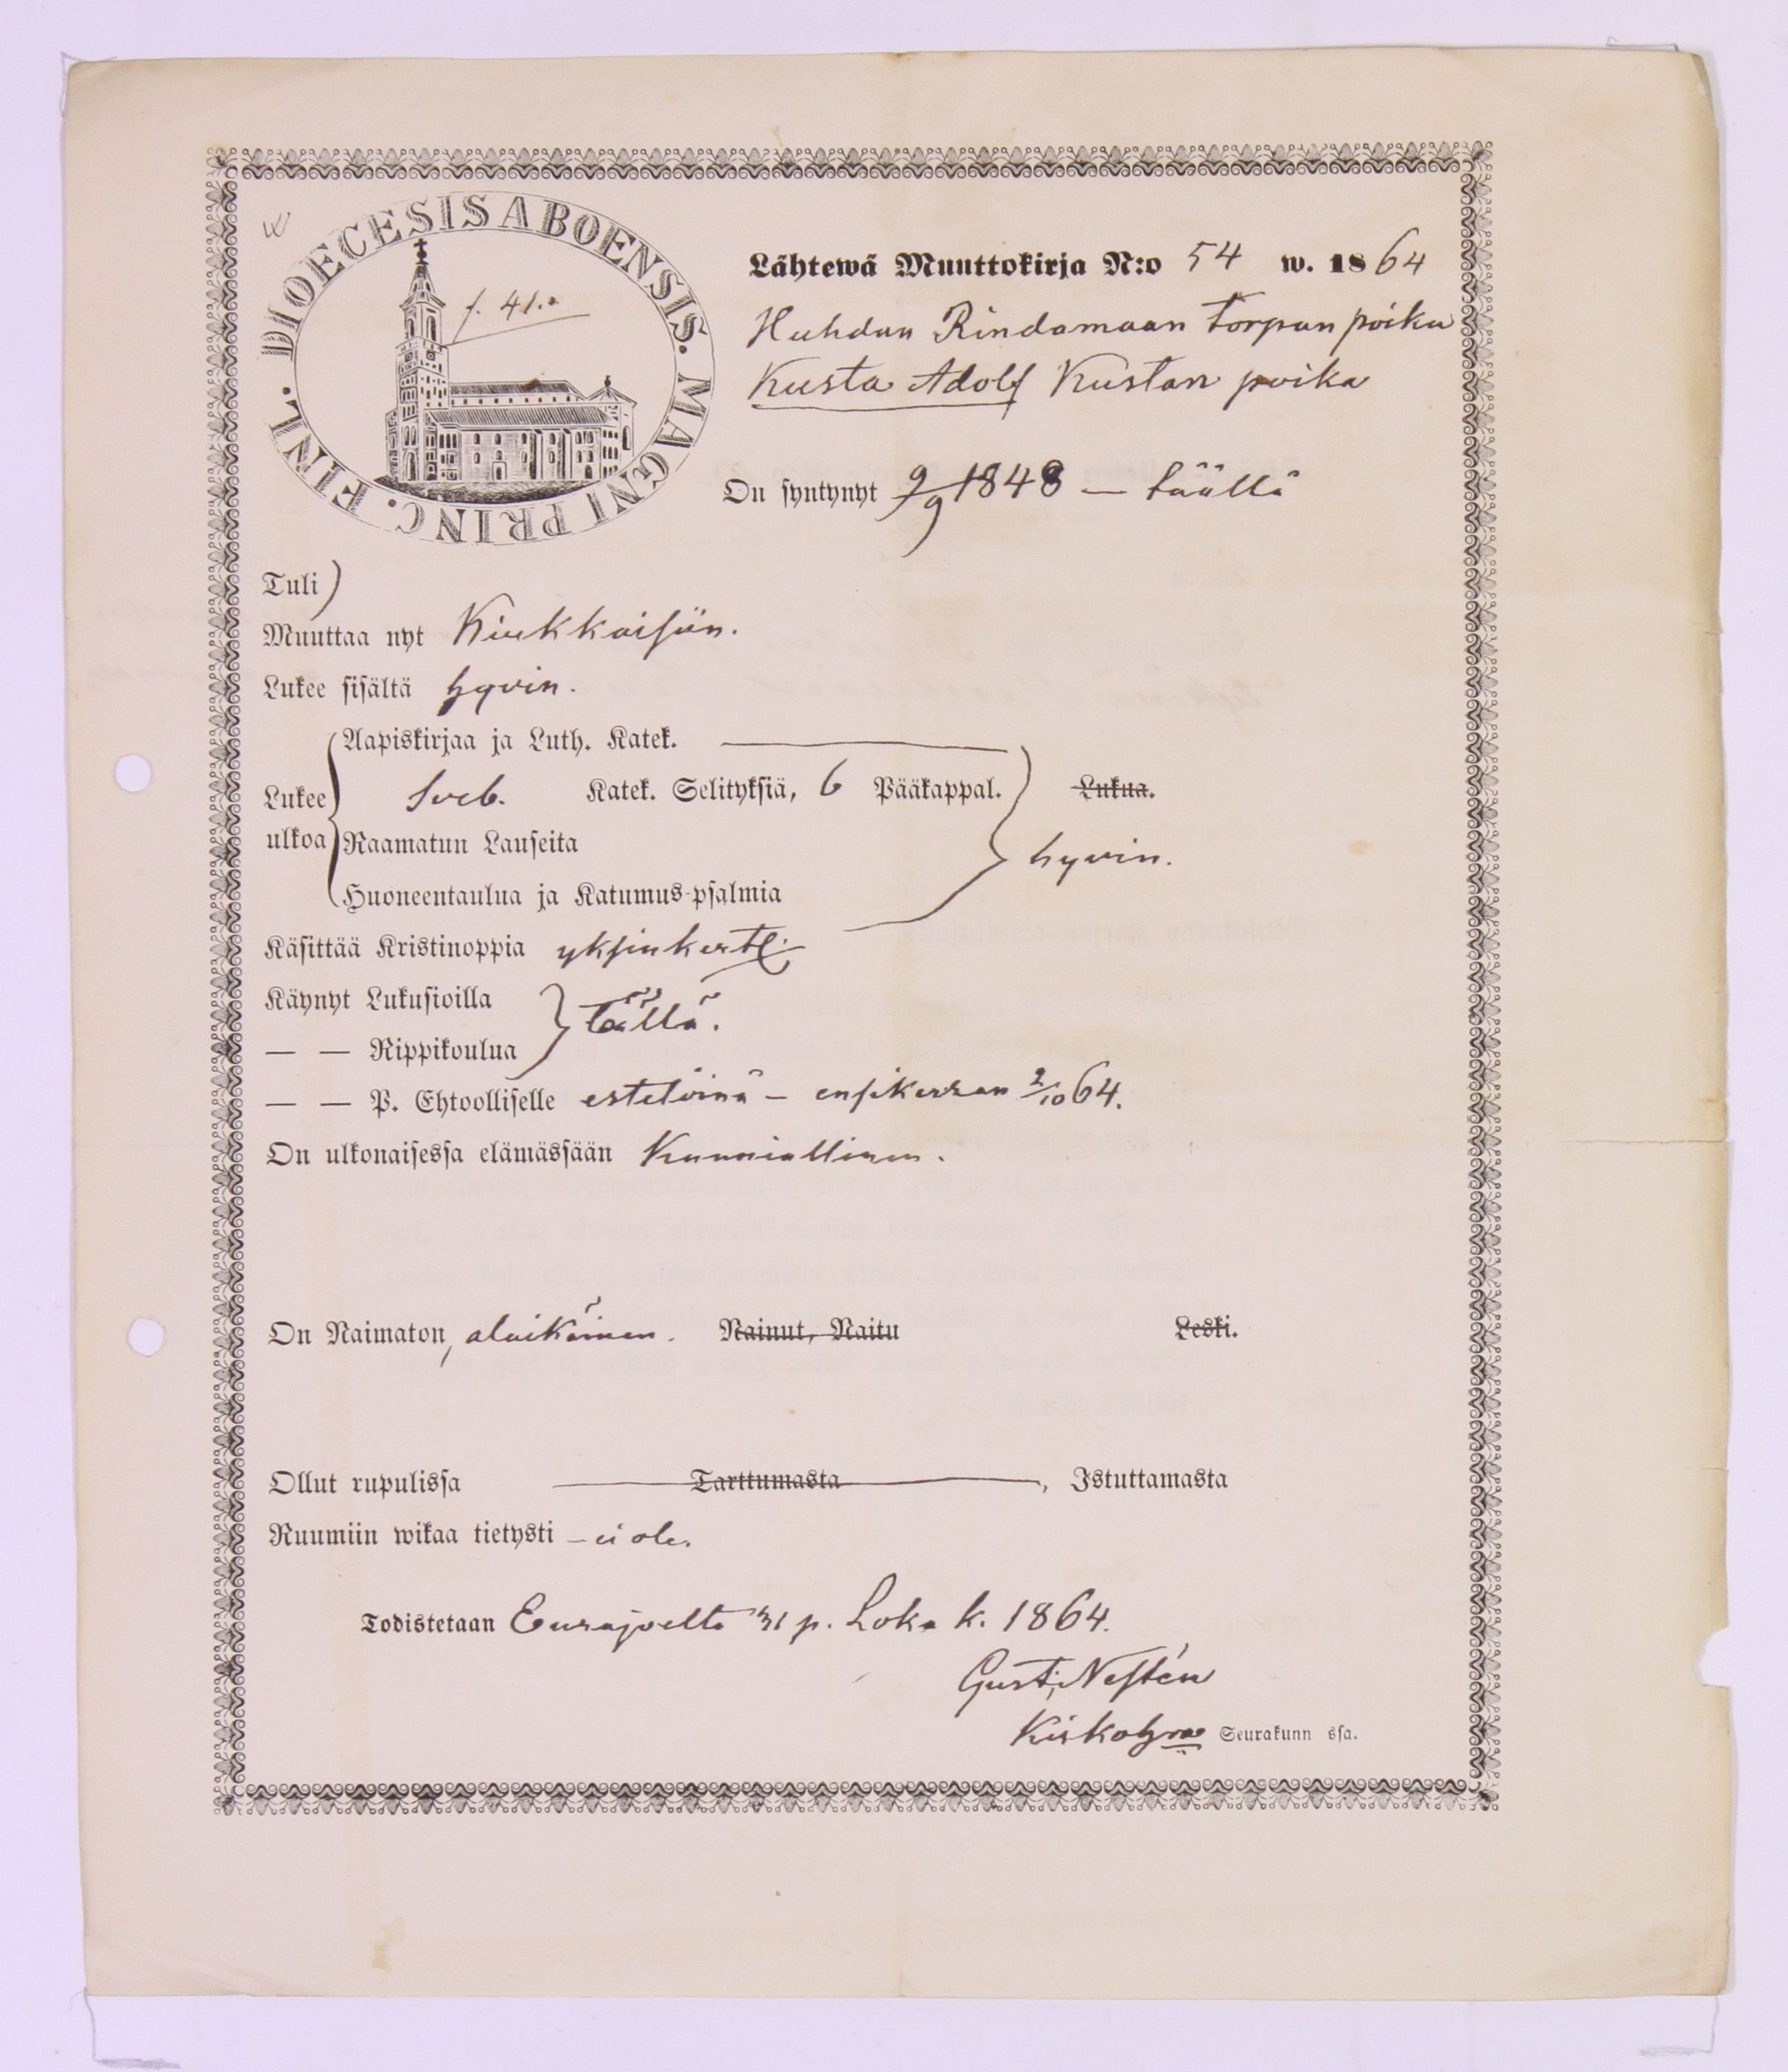 DIOECESIS ABOENSIS. MAGNI PRINC. FINL.
f. 41.
Lähtewä Muuttokirja N:o 54 w. 1864
Huhdan Rindamaan torpan poika
Kusta Adolf Kustan poika
On syntynyt 9/9 1848 — täällä
Tuli)
Muuttaa nyt Kiukkaisiin.
Lukee sisältä hyvin.
Aapiskirjaa ja Luth. Katek.
Lukee ulkoa
Sveb. Katek. Selityksiä, 6 Pääkappal. Lukua.
Raamatun Lauseita
hyvin.
Huoneentaulua ja Katumus-psalmia
Käsittää Kristinoppia yksinkert.
Käynyt Lukusioilla
täällä.
— — Rippikoulua
— — P. Ehtoolliselle estetöinä – ensikerran 2/10 64.
On ulkonaisessa elämässään Kunniallinen.
On Naimaton, alaikäinen. Nainut, Naitu Leski.
Ollut rupulissa Tarttumasta, Istuttamasta
Ruumiin wikaa tietysti – ei ole.
Todistetaan Eurajoelta 31 p. Loka k. 1864.
Gust. Nestén
Kirkohra Seurakunn ssa.